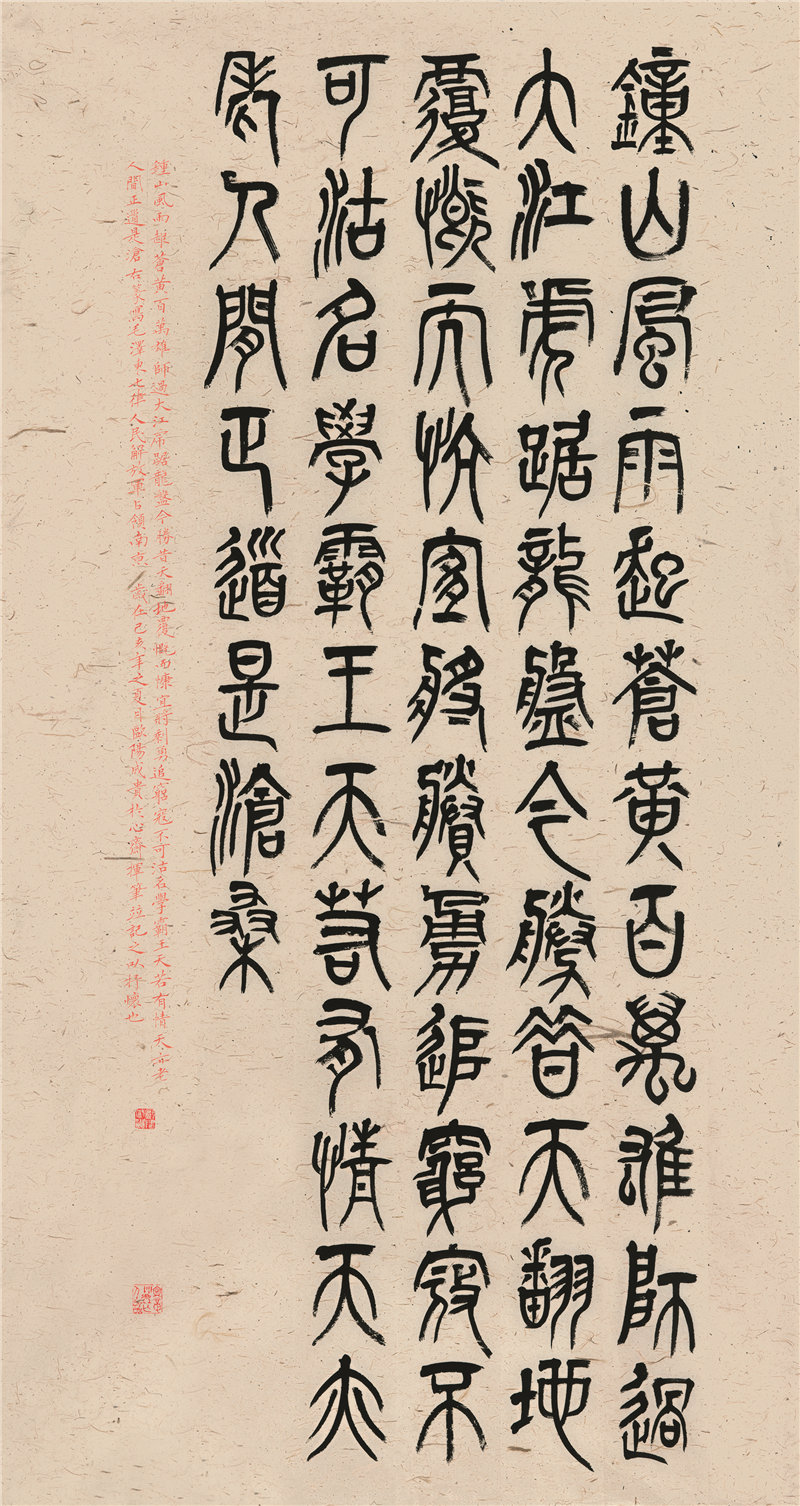 鐘山風雨起蒼黄百萬雄師過
大江虎踞龍盤今勝昔天翻地
覆慨而慷宜將賸勇追窮寇不
可沽名學霸王天若有情天亦
老人間正道是滄桑
鍾山風雨起蒼黄百萬雄師過大江虎踞龍盤今勝昔天翻地覆慨而慷宜將剩勇追窮寇不可沽名學霸王天若有情天亦老
人間正道是滄右篆寫毛澤東七律人民解放軍占領南京 歲在己亥年之夏月歐陽成貴於心齋揮筆並記之以抒懷也